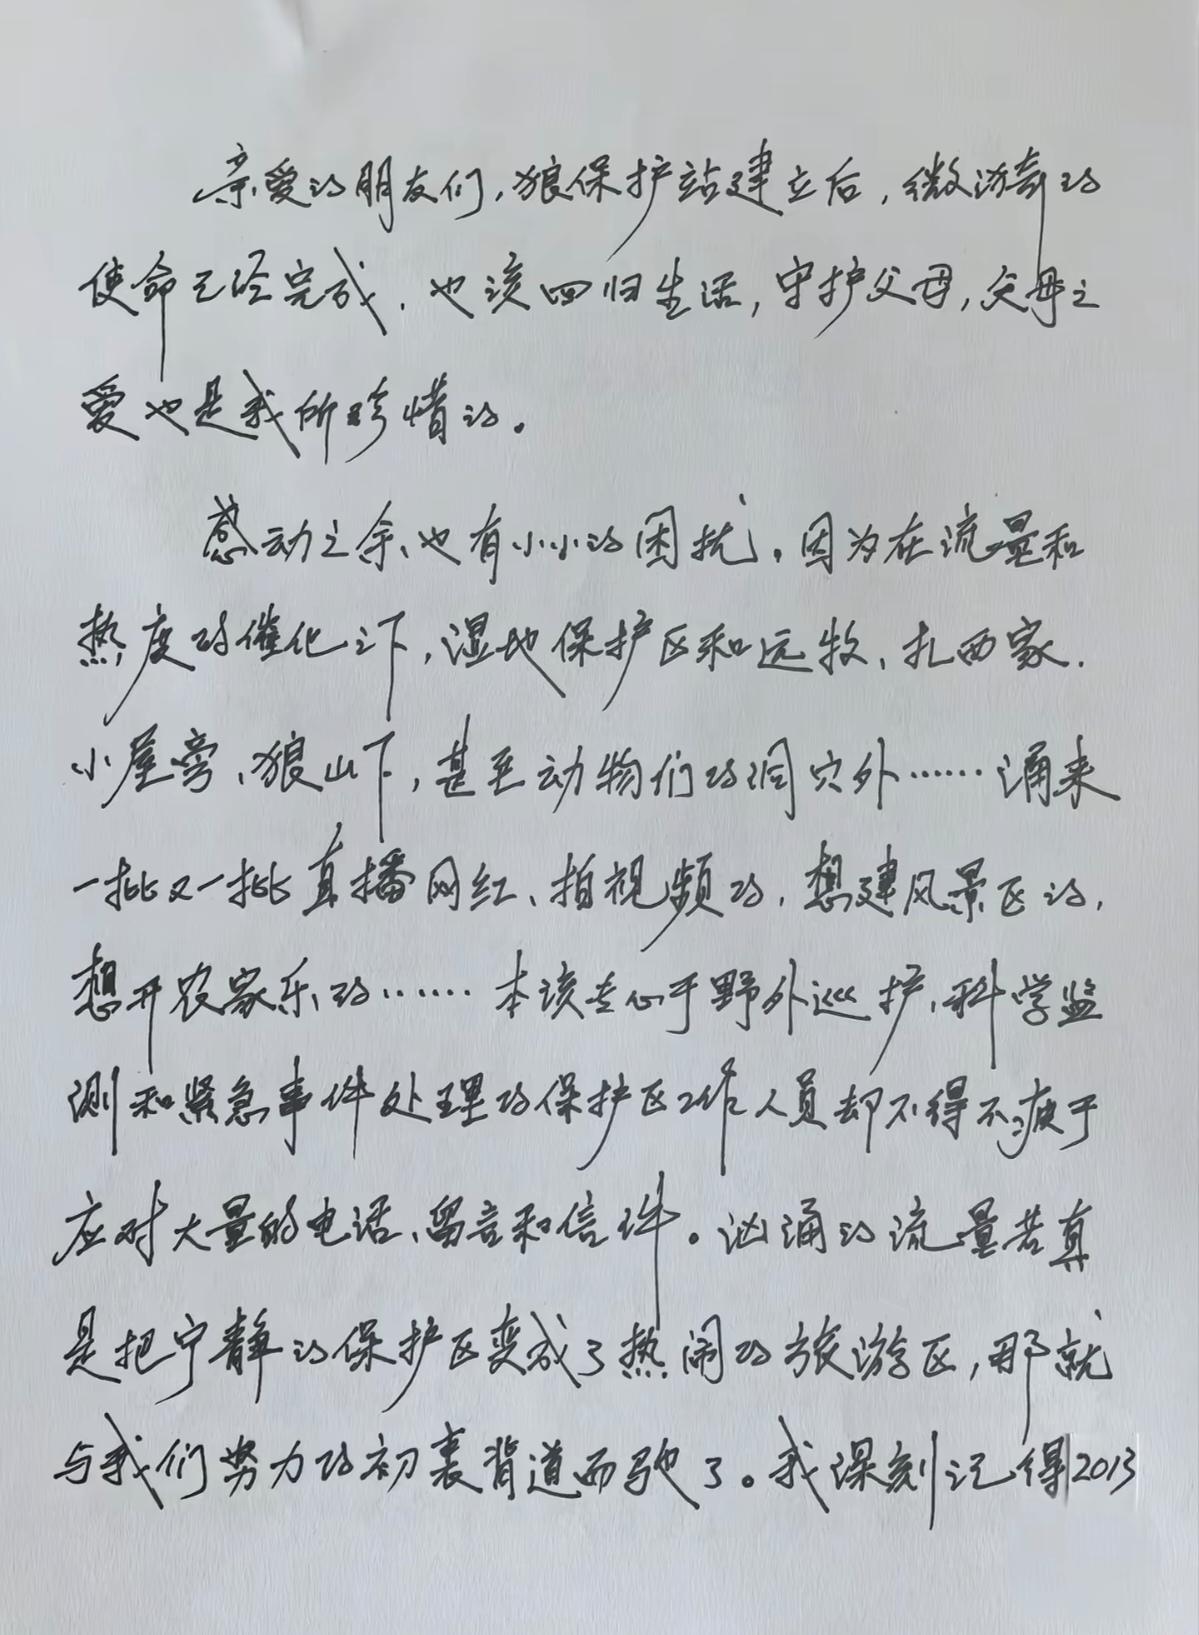 亲爱的朋友们,狼保护站建立后,微漪的
使命已经完成,也该回归生活,守护父母,父母之
爱也是我所珍惜的。
感动之余、也有小小的困扰。因为在流量和
热度的催化之下,湿地保护区和远牧、扎西家、
小屋旁、狼山下,甚至动物们的洞穴外……涌来
一批又一批直播网红、拍视频的,想建风景区的,
想开农家乐的……本该专心于野外巡护、科学监
测和紧急事件处理的保护区工作人员却不得不疲于
应对大量的电话、留言和信件。汹涌的流量若真
是把宁静的保护区变成了热闹的旅游区,那就
与我们努力的初衷背道而驰了。我深刻记得2013